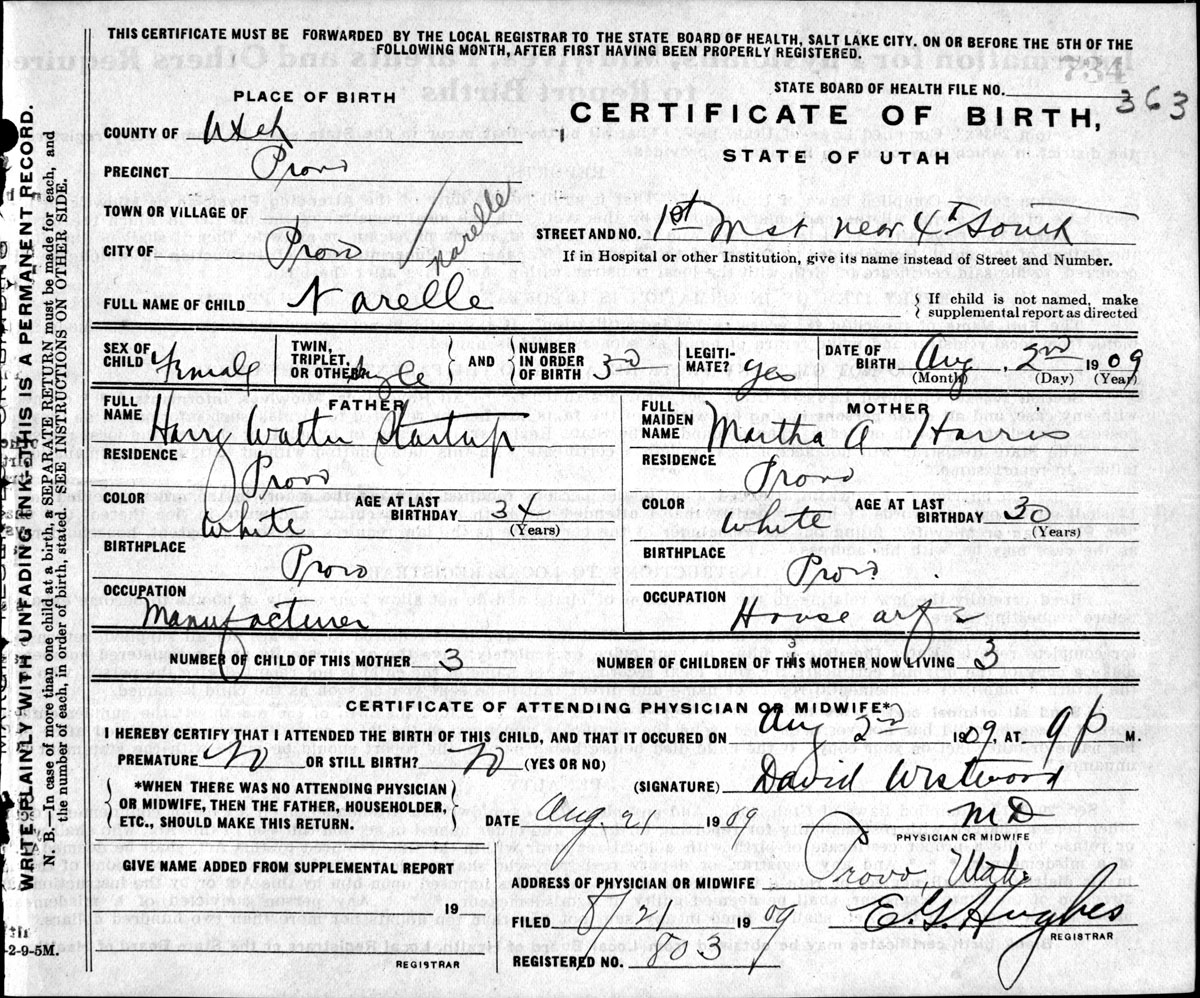 THIS CERTIFICATE MUST BE FORWARDED BY THE LOCAL REGISTRAR TO THE STATE BOARD OF HEALTH, SALT LAKE CITY. ON OR BEFORE THE 5TH OF THE
FOLLOWING MONTH, AFTER FIRST HAVING BEEN PROPERLY REGISTERED.
734
STATE BOARD OF HEALTH FILE NO.
363
PLACE OF BIRTH
CERTIFICATE OF BIRTH,
STATE OF UTAH
COUNTY OF Utah
PRECINCT Provo
TOWN OR VILLAGE OF
CITY OF Provo Narelle
STREET AND NO. 1st West near 4th South
If in Hospital or other Institution, give its name instead of Street and Number.
FULL NAME OF CHILD Narelle
{ If child is not named, make
supplemental report as directed
SEX OF CHILD Female
TWIN, TRIPLET, OR OTHER Single
AND NUMBER IN ORDER OF BIRTH 3rd
LEGITIMATE? yes
DATE OF BIRTH Aug. 2nd 1909
(Month) (Day) (Year)
FATHER
FULL NAME Harry Walter Startup
RESIDENCE Provo
COLOR White
AGE AT LAST BIRTHDAY 34
(Years)
BIRTHPLACE Provo
OCCUPATION Manufacturer
MOTHER
FULL MAIDEN NAME Martha A Harris
RESIDENCE Provo
COLOR White
AGE AT LAST BIRTHDAY 30
(Years)
BIRTHPLACE Provo.
OCCUPATION House
NUMBER OF CHILD OF THIS MOTHER 3
NUMBER OF CHILDREN OF THIS MOTHER NOW LIVING 3
3
CERTIFICATE OF ATTENDING PHYSICIAN OR MIDWIFE*
I HEREBY CERTIFY THAT I ATTENDED THE BIRTH OF THIS CHILD, AND THAT IT OCCURED ON Aug 2nd 1909, AT 9 P M.
PREMATURE No OR STILL BIRTH? No (YES OR NO)
*WHEN THERE WAS NO ATTENDING PHYSICIAN
OR MIDWIFE, THEN THE FATHER, HOUSEHOLDER,
ETC., SHOULD MAKE THIS RETURN.
(SIGNATURE) David Westwood
MD
PHYSICIAN OR MIDWIFE
DATE Aug 1909
GIVE NAME ADDED FROM SUPPLEMENTAL REPORT
19
REGISTRAR
ADDRESS OF PHYSICIAN OR MIDWIFE Provo Utah
FILED 8/ 1909
E. G. Hughes
REGISTRAR
REGISTERED NO. 803
WRITE PLAINLY WITH UNFADING INK—THIS IS A PERMANENT RECORD.
N. B.—In case of more than one child at a birth, a SEPARATE RETURN must be made for each, and
the number of each, in order of birth, stated. SEE INSTRUCTIONS ON OTHER SIDE.
-2-9-5M.